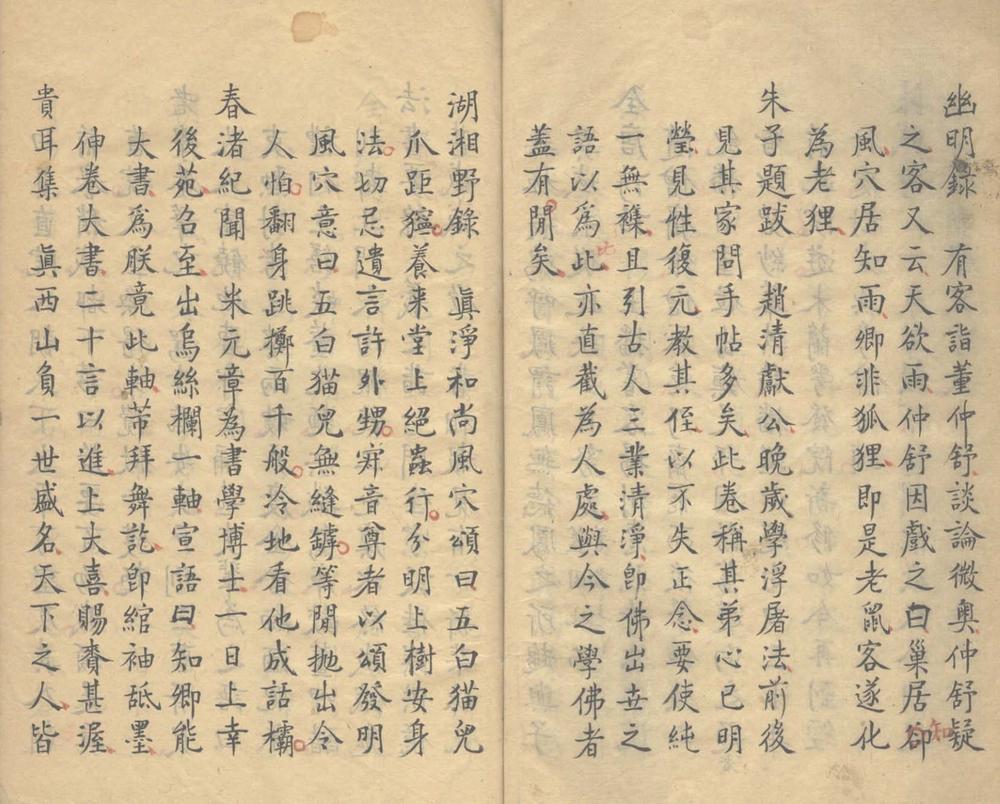 幽明録　有客詣董仲舒談論微奧仲舒疑
之客又云天欲雨仲舒因戲之曰巢居卻
風穴居知雨卿非狐狸即是老鼠客遂化
為老狸
朱子題跋　趙清獻公晚歲學浮屠法前後
見其家問手帖多矣此卷稱其弟心已明
瑩見性復元教其侄以不失正念要使純
一無襍且引古人三業清淨即佛出世之
語以為此亦直截為人處與今之學佛者
蓋有間矣
湖湘野録　眞淨和尚風穴頌曰五白猫兒
爪距獰養来堂上絕蟲行分明上樹安身
法切忌遺言許外甥寂音尊者以頌發明
風穴意曰五白猫兒無縫罅等閒拋出令
人怕翻身跳擲百千般冷地看他成話欛
春渚紀聞　米元章為書學博士一日上幸
後苑召至出烏絲欄一軸宣語曰知卿能
大書為朕竟此軸芾拜舞訖卽綰袖舐墨
伸卷大書二十言以進上大喜賜賚甚渥
貴耳集　眞西山負一世盛名天下之人皆
知
此